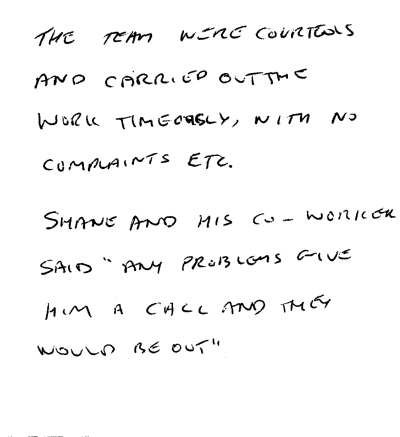 THE TEAM WERE COURTEOUS
AND CARRIED OUT THE
WORK TIMEOUSLY, WITH NO
COMPLAINTS ETC.
SHANE AND HIS CO-WORKER
SAID "ANY PROBLEMS GIVE
HIM A CALL AND THEY
WOULD BE OUT"